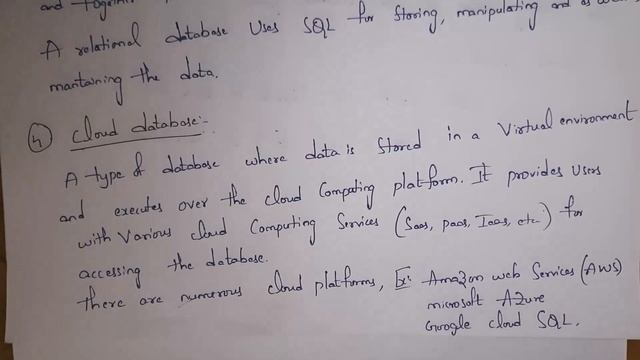 and together
A rolational database Uses SQL for Storing, manipulating and as well
mantaining the data.
4) Cloud database:-
A type of database where data is Stored in a Virtual environment
and executes over the cloud Computing platform. It provides Users
with Various cloud Computing Services (Saas, paas, Iaas, etc) for
accessing the database.
there are numerous cloud platforms, Ex:- Amazon web Services (AWS)
microsoft Azure
Google cloud SQL.